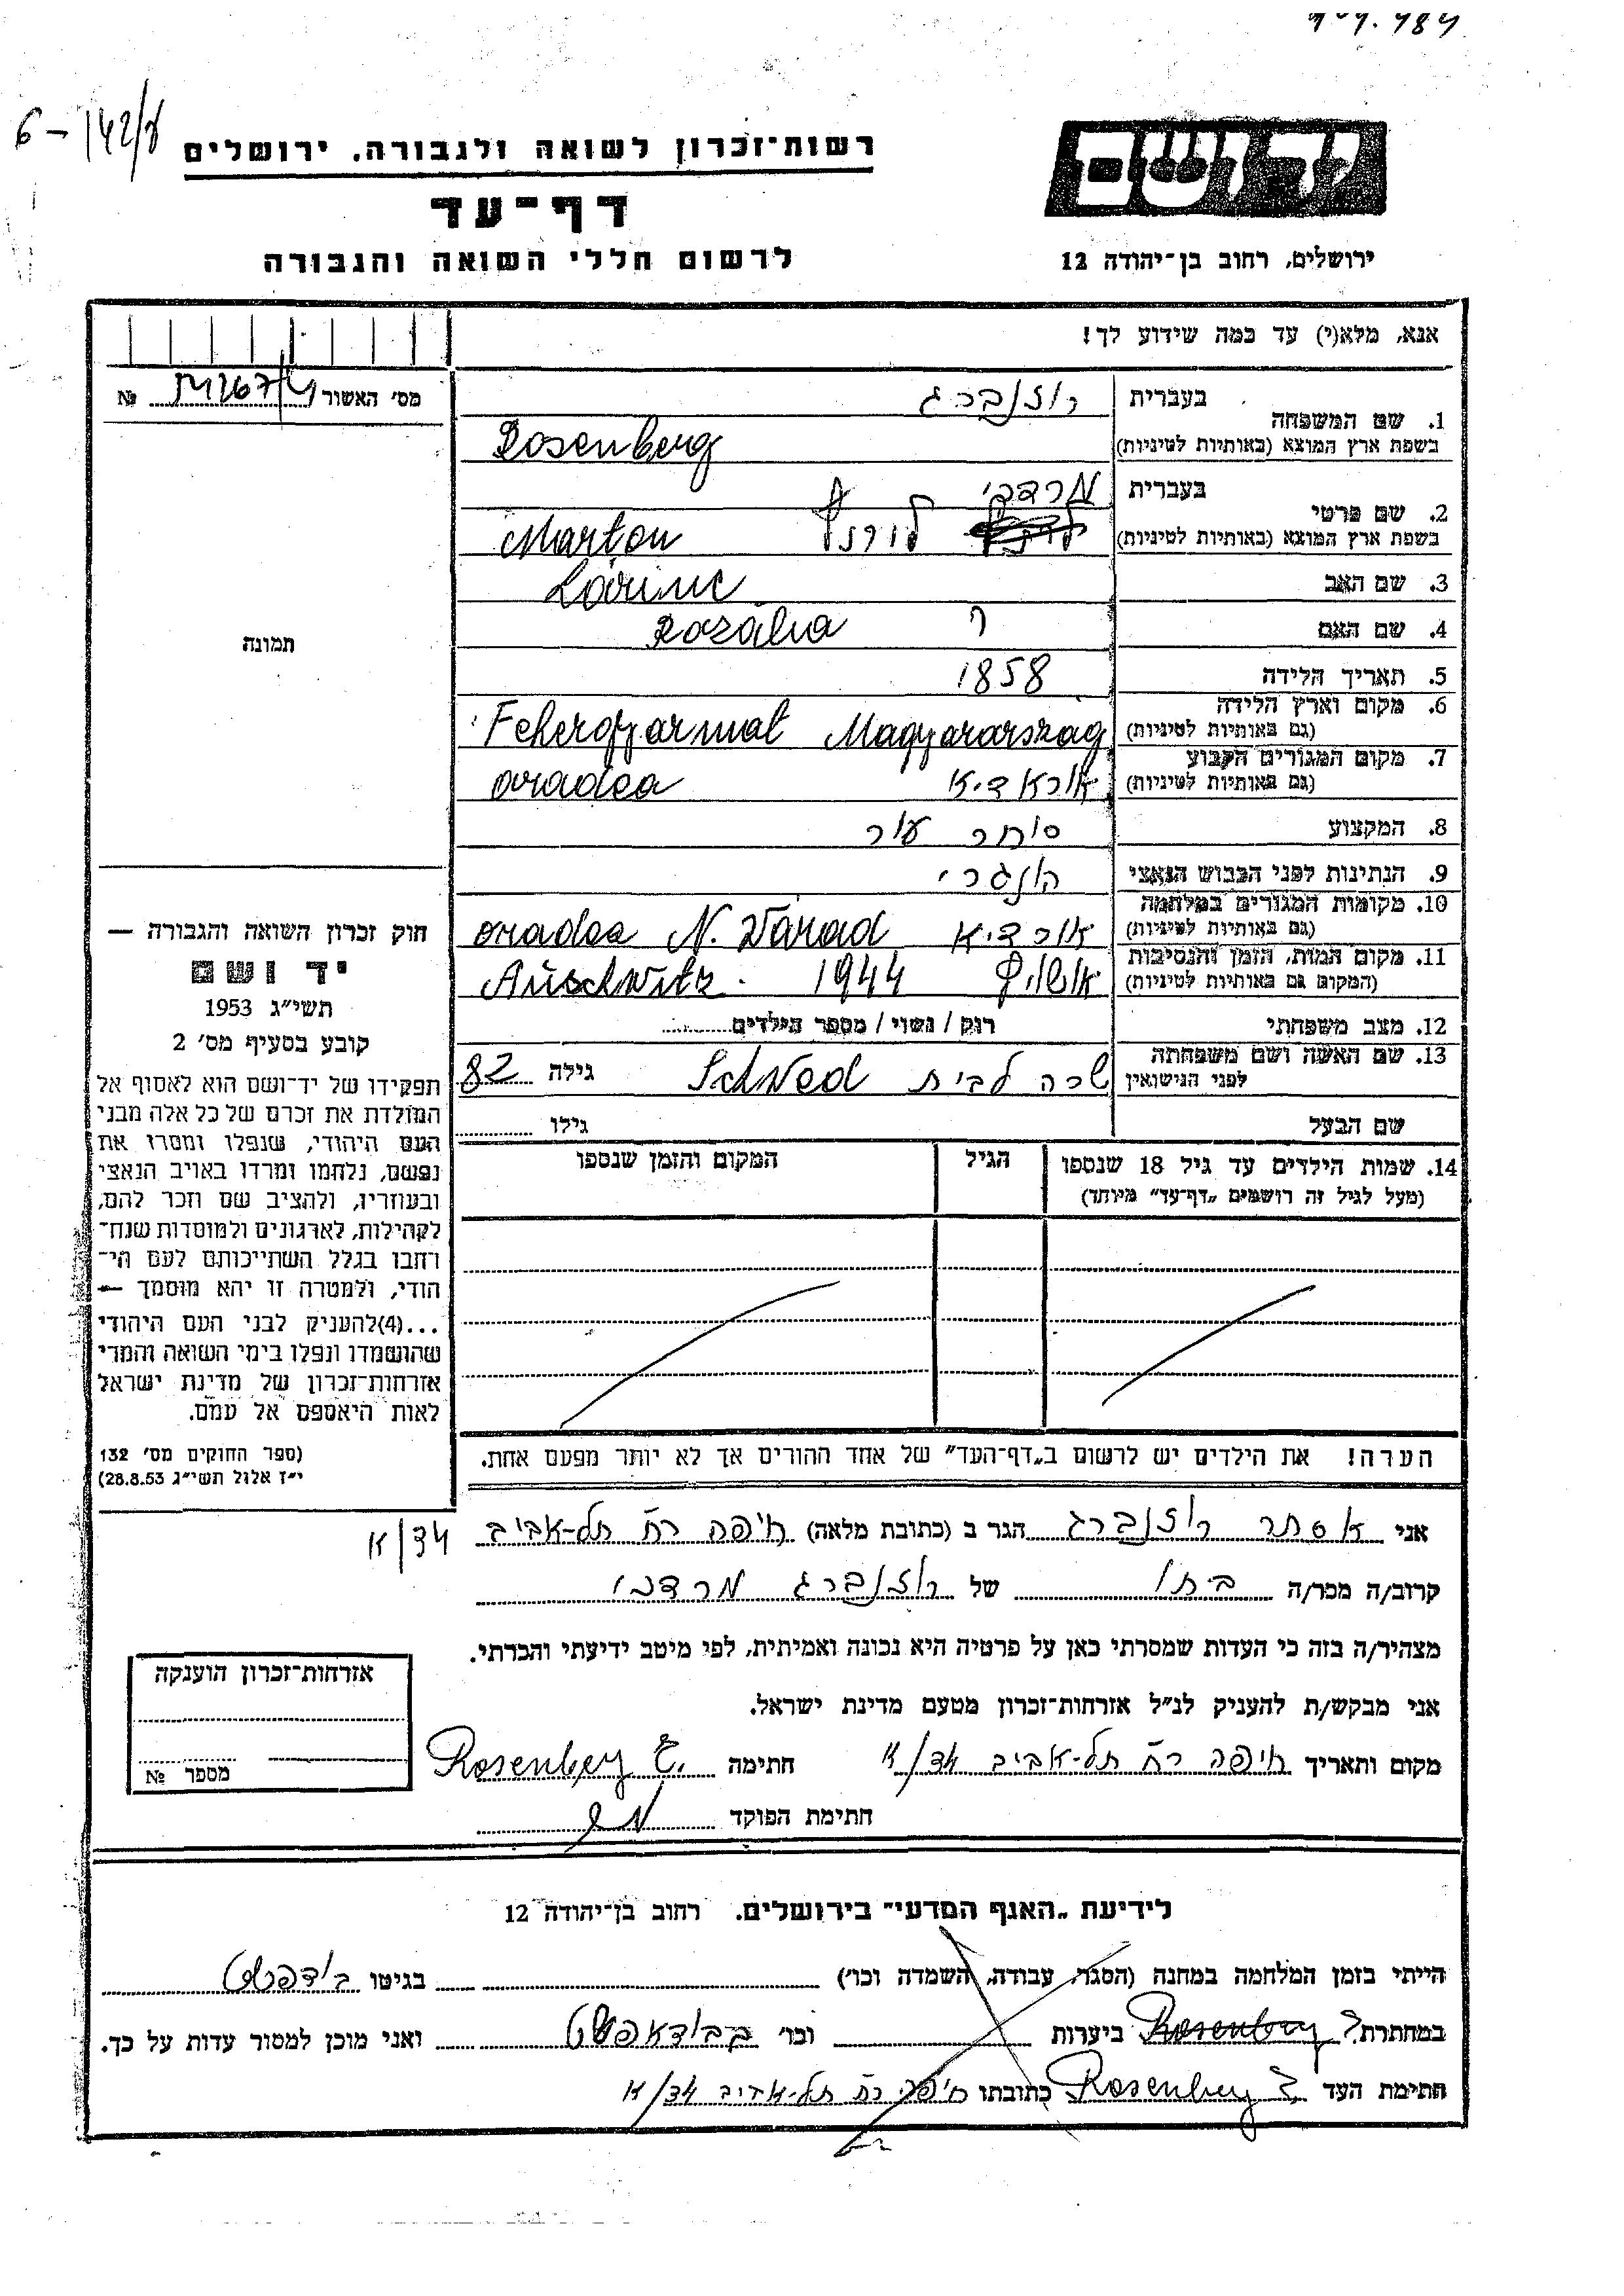 6-142/ע
רשות-זכרון לשואה ולגבורה. ירושלים
דף-עד
לרשום חללי השואה והגבורה
יד ושם
ירושלים, רחוב בן-יהודה 12
אנא, מלא(י) עד כמה שידוע לך!
מס׳ האשור № 
בעברית רוזנברג
1. שם המשפחה
בשפת ארץ המוצא (באותיות לטיניות) Rosenberg
בעברית מרדכי
2. שם פרטי
בשפת ארץ המוצא (באותיות לטיניות) Marton
3. שם האב Lőrinc
4. שם האם Rozália
5. תאריך הלידה 1858
6. מקום וארץ הלידה
(גם באותיות לטיניות) Fehergyarmat Magyararszag
7. מקום המגורים הקבוע
(גם באותיות לטיניות) אוראדיא oradea
8. המקצוע סוחר עור
9. הנתינות לפני הכבוש הנאצי הונגרי
10. מקומות המגורים במלחמה
(גם באותיות לטיניות) אורדיא oradea N. Várad
11. מקום המות, הזמן והנסיבות
(המקום גם באותיות לטיניות) אושויץ 1944 Auschwitz.
12. מצב משפחתי רוק / נשוי / מספר הילדים
13. שם האשה ושם משפחתה
לפני הנישואין שרה לבית Schwed גילה 82
שם הבעל גילו
14. שמות הילדים עד גיל 18 שנספו הגיל המקום והזמן שנספו
(מעל לגיל זה רושמים „דף-עד" מיוחד)
הערה! את הילדים יש לרשום ב„דף-העד" של אחד ההורים אך לא יותר מפעם אחת.
תמונה
חוק זכרון השואה והגבורה —
יד ושם
תשי״ג 1953
קובע בסעיף מס׳ 2
תפקידו של יד-ושם הוא לאסוף אל
המולדת את זכרם של כל אלה מבני
העם היהודי, שנפלו ומסרו את
נפשם, נלחמו ומרדו באויב הנאצי
ובעוזריו, ולהציב שם וזכר להם,
לקהילות, לארגונים ולמוסדות שנח-
רבו בגלל השתייכותם לעם הי-
הודי, ולמטרה זו יהא מוסמך —
...(4)להעניק לבני העם היהודי
שהושמדו ונפלו בימי השואה והמרי
אזרחות-זכרון של מדינת ישראל
לאות היאספם אל עמם.
(ספר החוקים מס׳ 132
י״ז אלול תשי״ג 28.8.53)
אני אסתר רוזנברג הגר ב (כתובת מלאה) חיפה רח תל-אביב 34/א
קרוב/ה מכר/ה ביתו של רוזנברג מרדכי
מצהיר/ה בזה כי העדות שמסרתי כאן על פרטיה היא נכונה ואמיתית, לפי מיטב ידיעתי והכרתי.
אני מבקש/ת להעניק לנ״ל אזרחות-זכרון מטעם מדינת ישראל.
מקום ותאריך חיפה רח תל-אביב 34/א חתימה Rosenberg E.
חתימת הפוקד
אזרחות-זכרון הוענקה
מספר №
לידיעת „האגף המדעי" בירושלים. רחוב בן-יהודה 12
הייתי בזמן המלחמה במחנה (הסגר, עבודה, השמדה וכו׳) בגיטו בודפשט
במחתרת Rosenberg ביערות וכו׳ בבודאפשט ואני מוכן למסור עדות על כך.
חתימת העד Rosenberg E. כתובתו חיפה רח תל-אביב 34/א